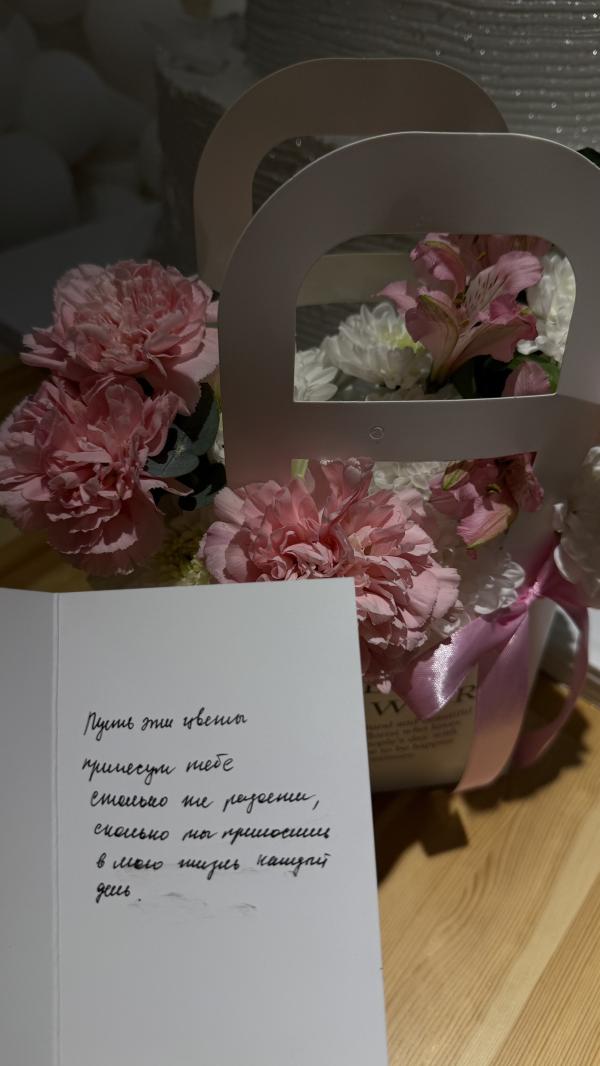 Пусть эти цветы
принесут тебе
столько же радости,
сколько ты приносишь
в мою жизнь каждый
день.